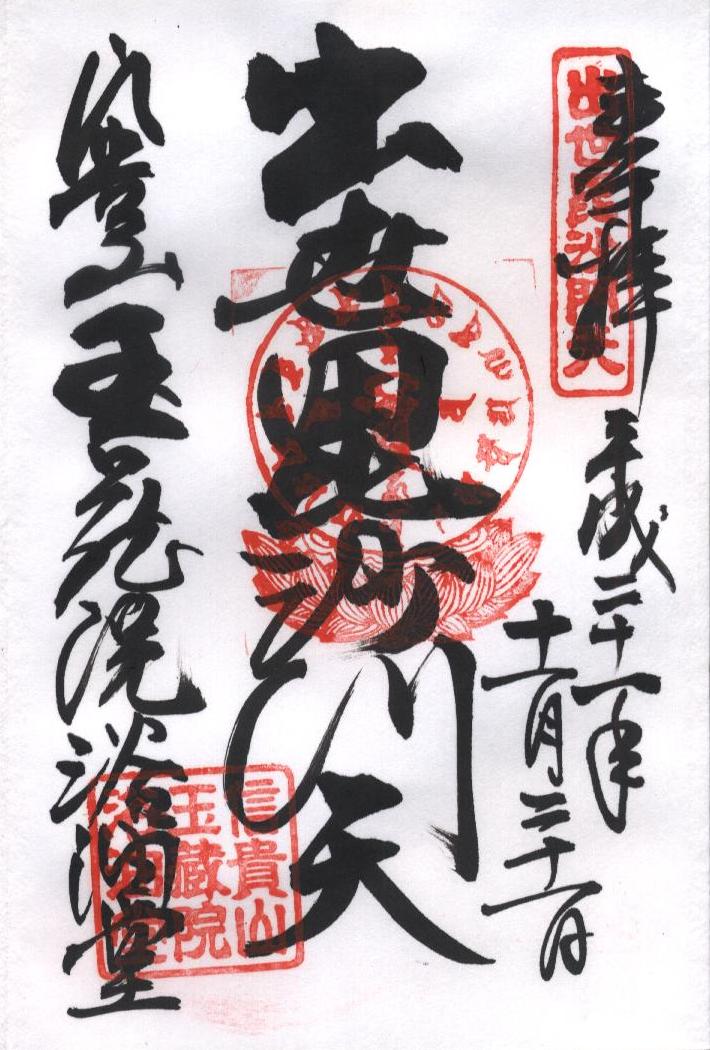 奉拝
出世毘沙門天
平成二十一年
十一月二十一日
出世毘沙門天
信貴山玉蔵院浴油堂
信貴山
玉蔵院
浴油堂